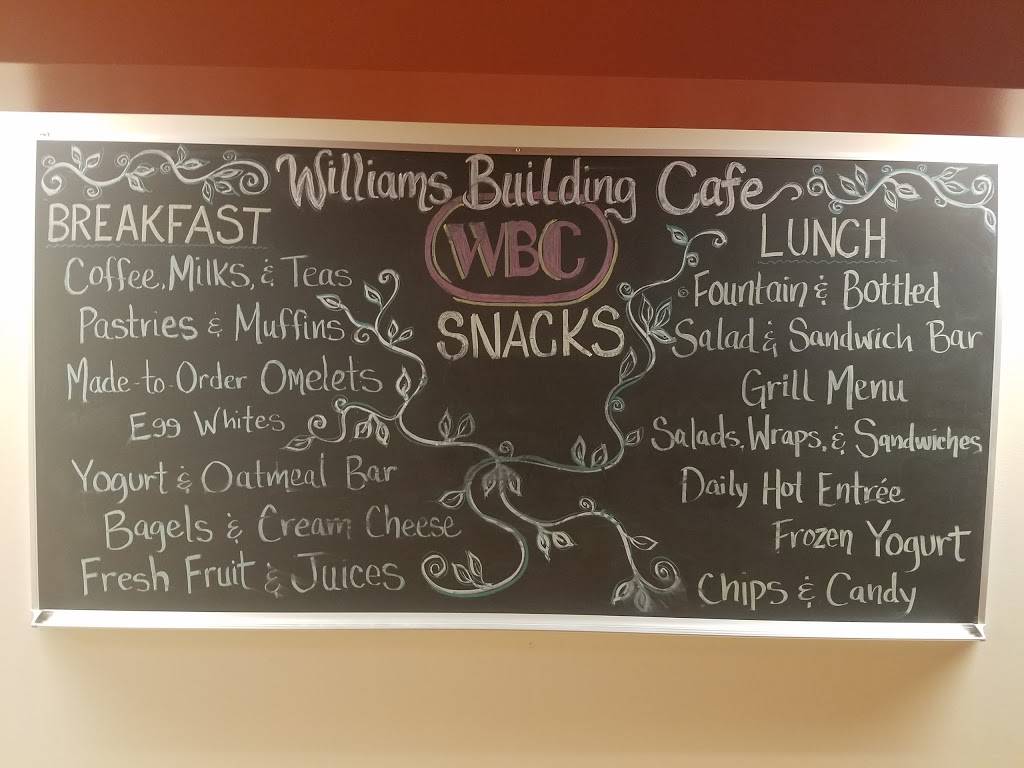 Williams Building Cafe
WBC
SNACKS
BREAKFAST
Coffee, Milks, & Teas
Pastries & Muffins
Made-to-Order Omelets
Egg Whites
Yogurt & Oatmeal Bar
Bagels & Cream Cheese
Fresh Fruit & Juices
LUNCH
Fountain & Bottled
Salad & Sandwich Bar
Grill Menu
Salads, Wraps, & Sandwiches
Daily Hot Entrée
Frozen Yogurt
Chips & Candy